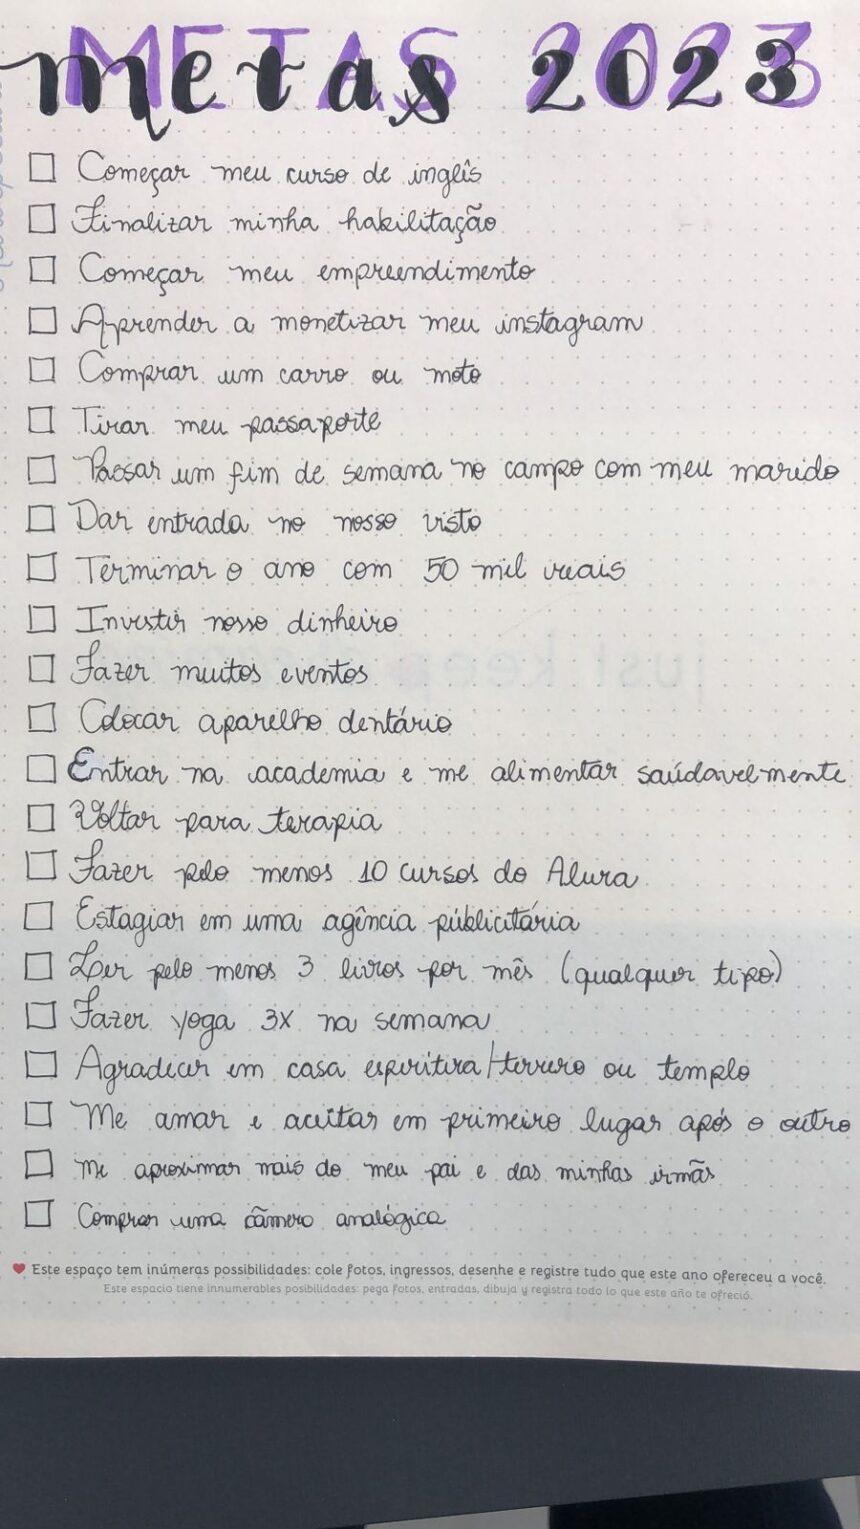 METAS 2023
metas 2023
Começar meu curso de inglês
Finalizar minha habilitação
Começar meu empreendimento
Aprender a monetizar meu instagram
Comprar um carro ou moto
Tirar meu passaporte
Passar um fim de semana no campo com meu marido
Dar entrada no nosso visto
Terminar o ano com 50 mil reais
Investir nosso dinheiro
Fazer muitos eventos
Colocar aparelho dentário
Entrar na academia e me alimentar saúdavelmente
Voltar para terapia
Fazer pelo menos 10 cursos do Alura
Estagiar em uma agência públicitária
Ler pelo menos 3 livros por mês (qualquer tipo)
Fazer yoga 3x na semana
Agradecer em casa espiritira/terreiro ou templo
Me amar e aceitar em primeiro lugar após o outro
Me aproximar mais do meu pai e das minhas irmãs
Comprar uma câmera analógica
Este espaço tem inúmeras possibilidades: cole fotos, ingressos, desenhe e registre tudo que este ano ofereceu a você.
Este espacio tiene innumerables posibilidades: pega fotos, entradas, dibuja y registra todo lo que este año te ofreció.
just keep